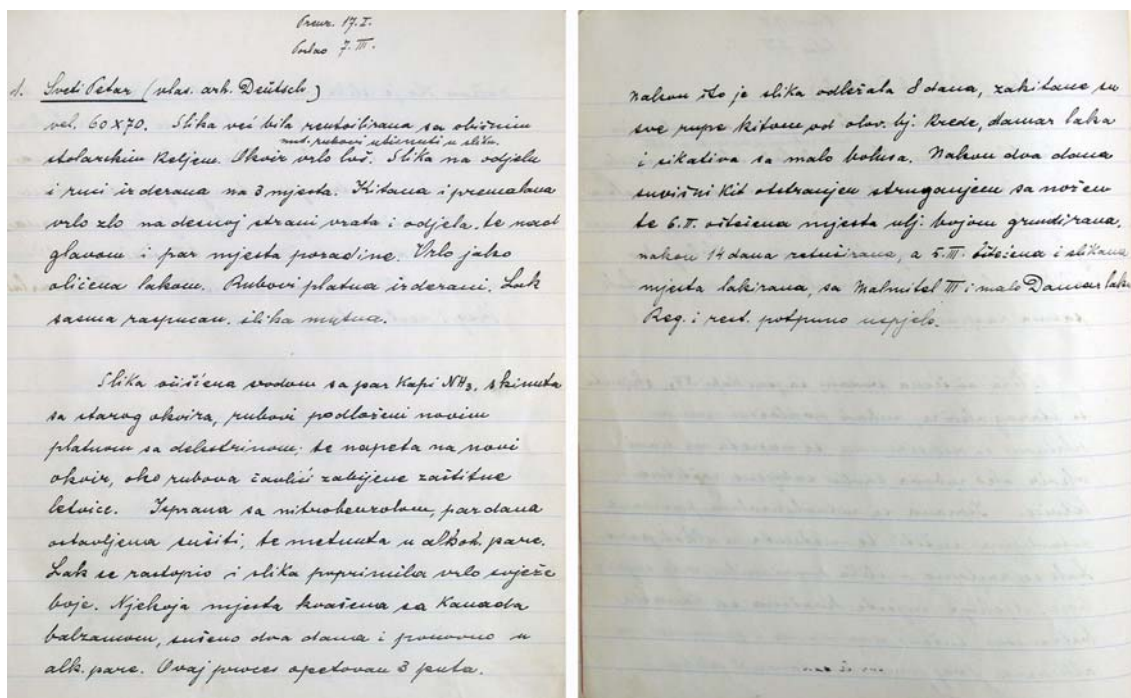 Preuz. 17.I.
Poslao 7.III.
1. Sveti Petar (vlas. arh. Deütsch)
vel. 60X70. Slika već bila rentoilirana sa običnim
rubovi utisnuti u sliku.
stolarskim keljem. Okvir vrlo loš. Slika na odjelu
i ruci izderana na 3 mjesta. Kitana i premalana
vrlo zlo na desnoj strani vrata i odjela. te nad
glavom i par mjesta pozadine. Vrlo jako
oličena lakom. Rubovi platna izderani. Lak
sasma raspucan. slika mutna.
Slika očišćena vodom sa par kapi NH3, skinuta
sa starog okvira, rubovi podloženi novim
platnom sa dekstrinom; te napeta na novi
okvir, oko rubova čavlići zabijene zaštitne
letvice. Isprana sa nitrobenzolom, par dana
ostavljena sušiti, te metnuta u alkoh. pare.
Lak se rastopio i slika poprimila vrlo svježe
boje. Njekoja mjesta kvašena sa Kanada
balzamom, sušeno dva dana i ponovno u
alk. pare. Ovaj proces opetovan 3 puta.
nakon što je slika odležala 8 dana, zakitane su
sve rupe kitom od olov. bj. krede, damar laka
i sikativa sa malo bolusa. Nakon dva dana
suvišni kit otstranjen struganjem sa nožem
te 6.II. oštećena mjesta ulj. bojom grundirana,
nakon 14 dana retuširana, a 5.III. čišćena i slikana
mjesta lakirana, sa Malmitel III i malo Damar lak.
Reg. i rest. potpuno uspjelo.